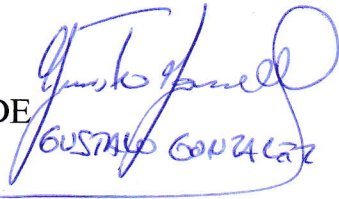 DE
GUSTAVO GONZALEZ